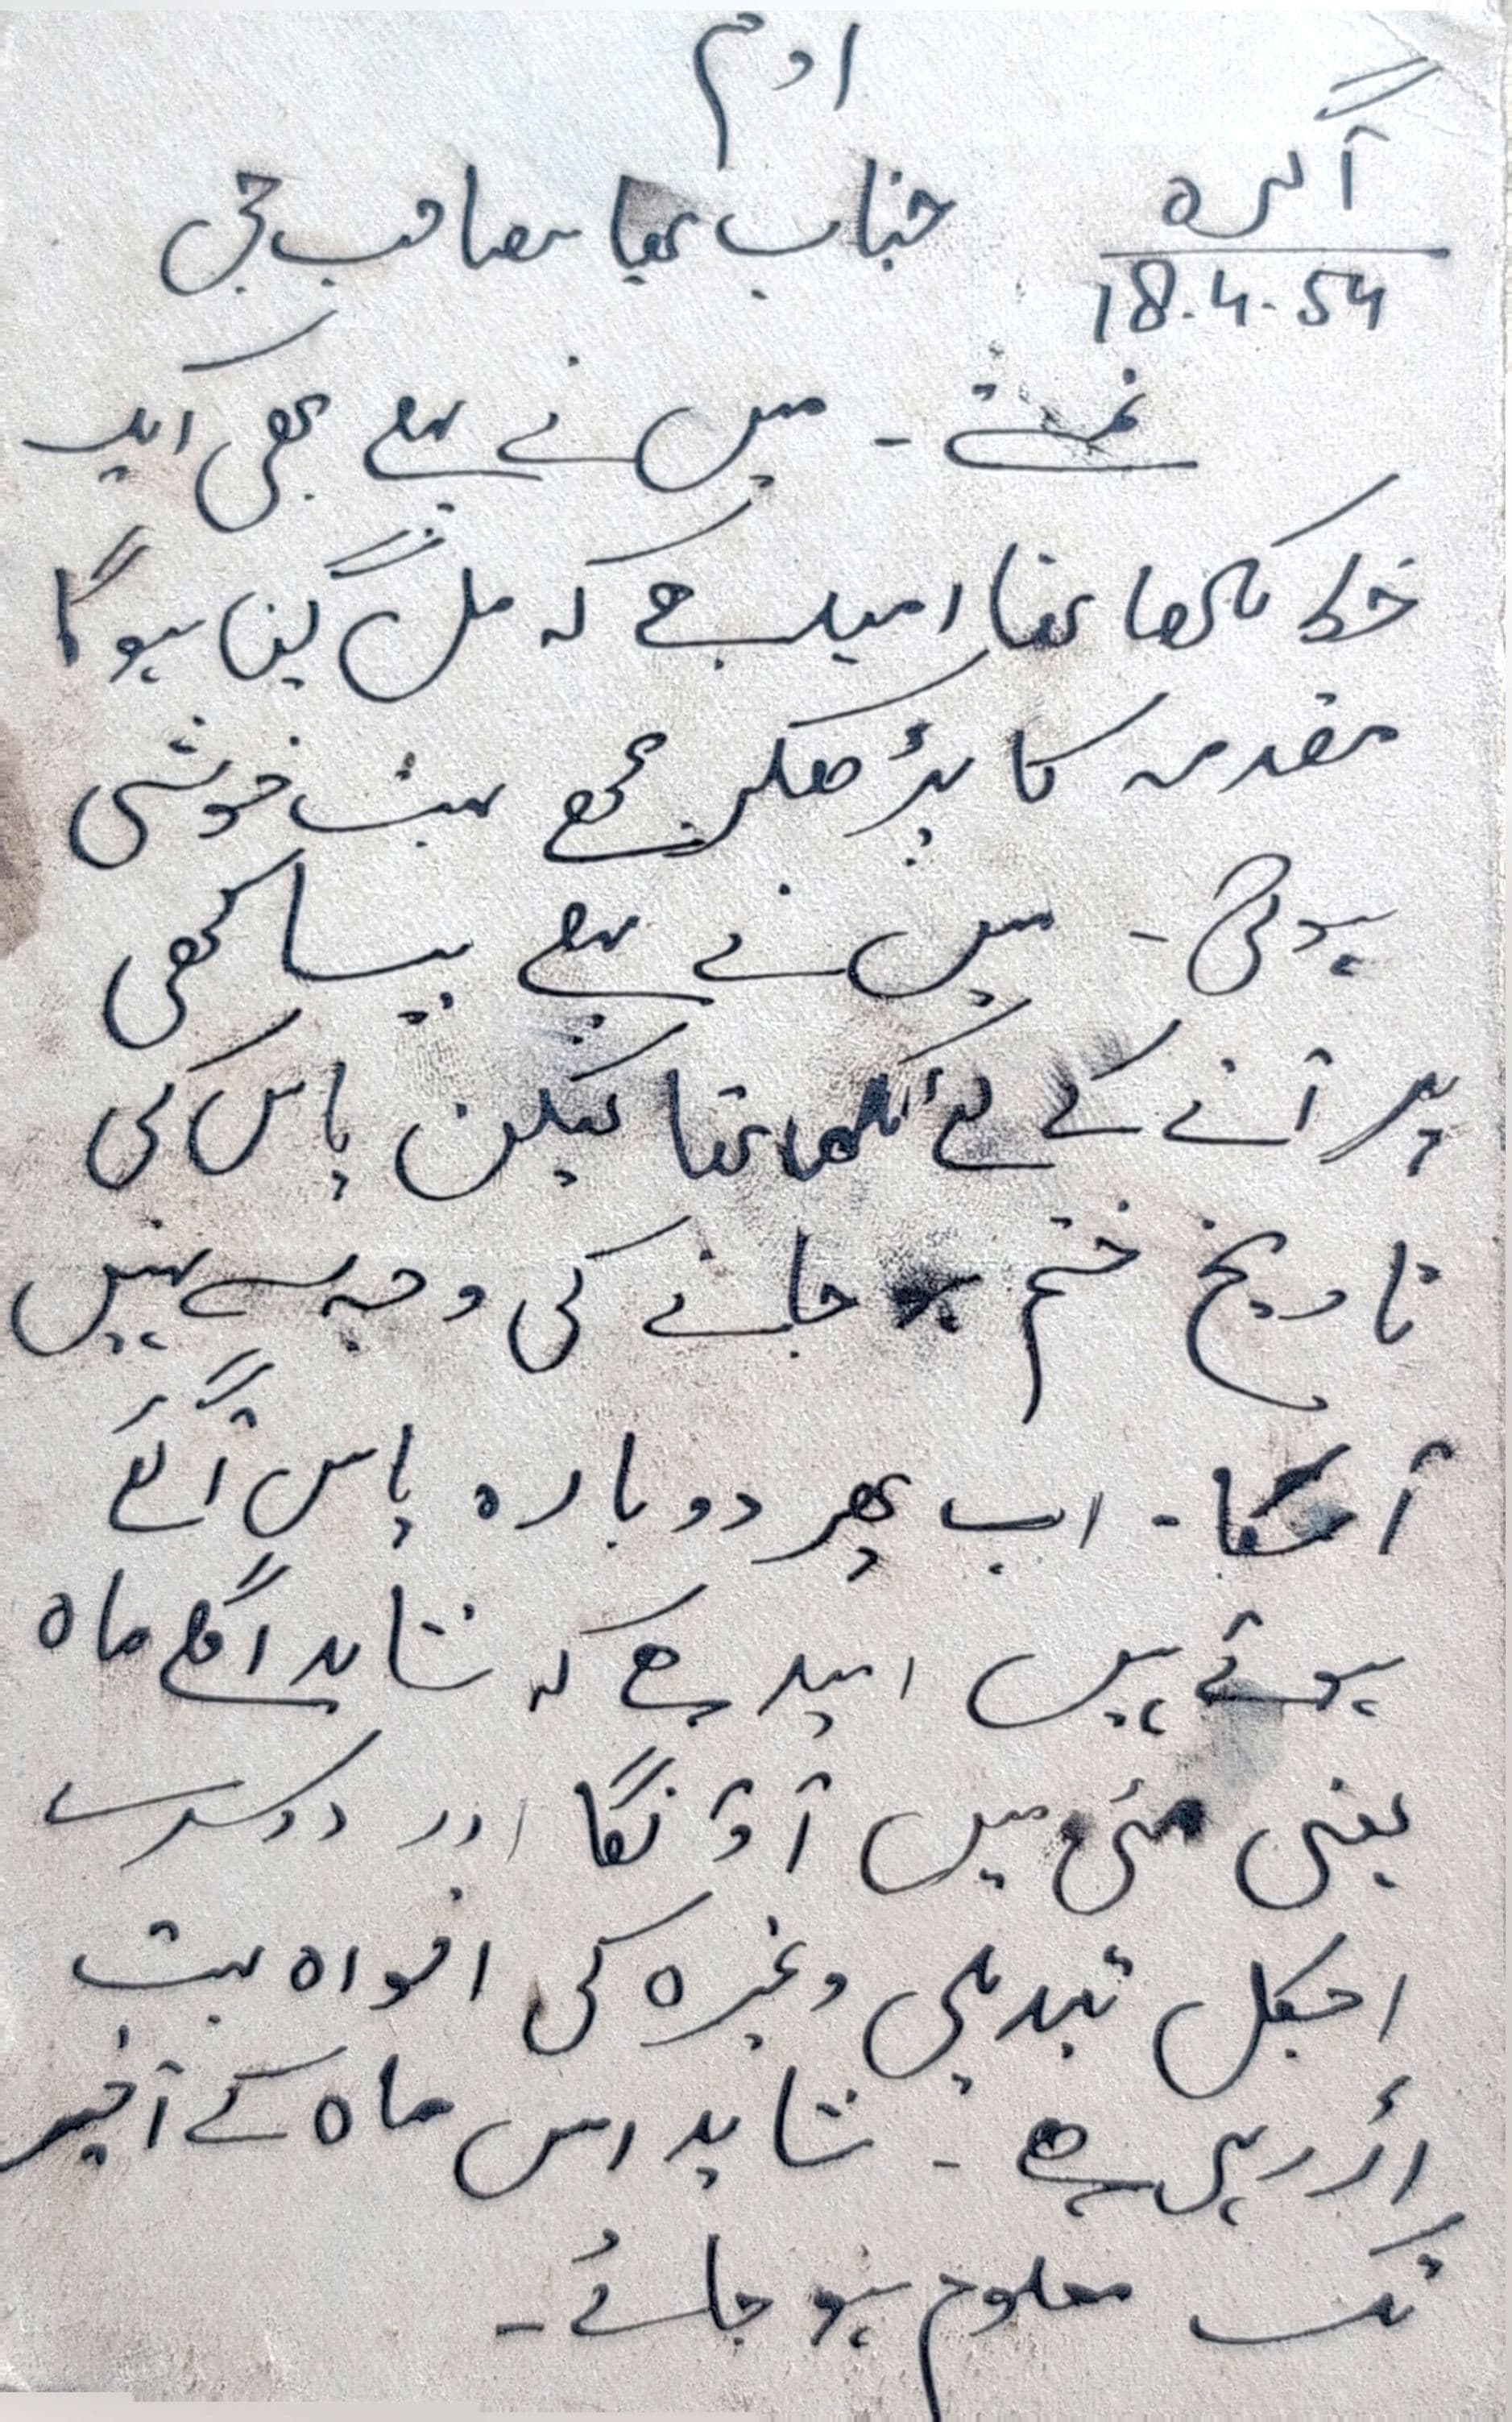 اوم
آگرہ
18.4.54
جناب بھیا صاحب جی
نمستے ۔ میں نے پہلے بھی ایک
خط لکھا تھا امید ہے کہ مل گیا ہوگا
مقدمہ کا پڑھکر مجھے بہت خوشی
ہوئی ۔ میں نے پہلے بیساکھی
پر آنے کے لئے لکھا تھا لیکن پاس کی
تاریخ ختم ہو جانے کی وجہ سے نہیں
آ سکا ۔ اب پھر دوبارہ پاس آ گئے
ہوئے ہیں امید ہے کہ شاید اگلے ماہ
یعنی مئی میں آؤنگا اور دوسرے
اجکل تبدیلی وغیرہ کی افواہ بہت
اڑ رہی ہے ۔ شاید اس ماہ کے آخیر
تک معلوم ہو جائے ۔